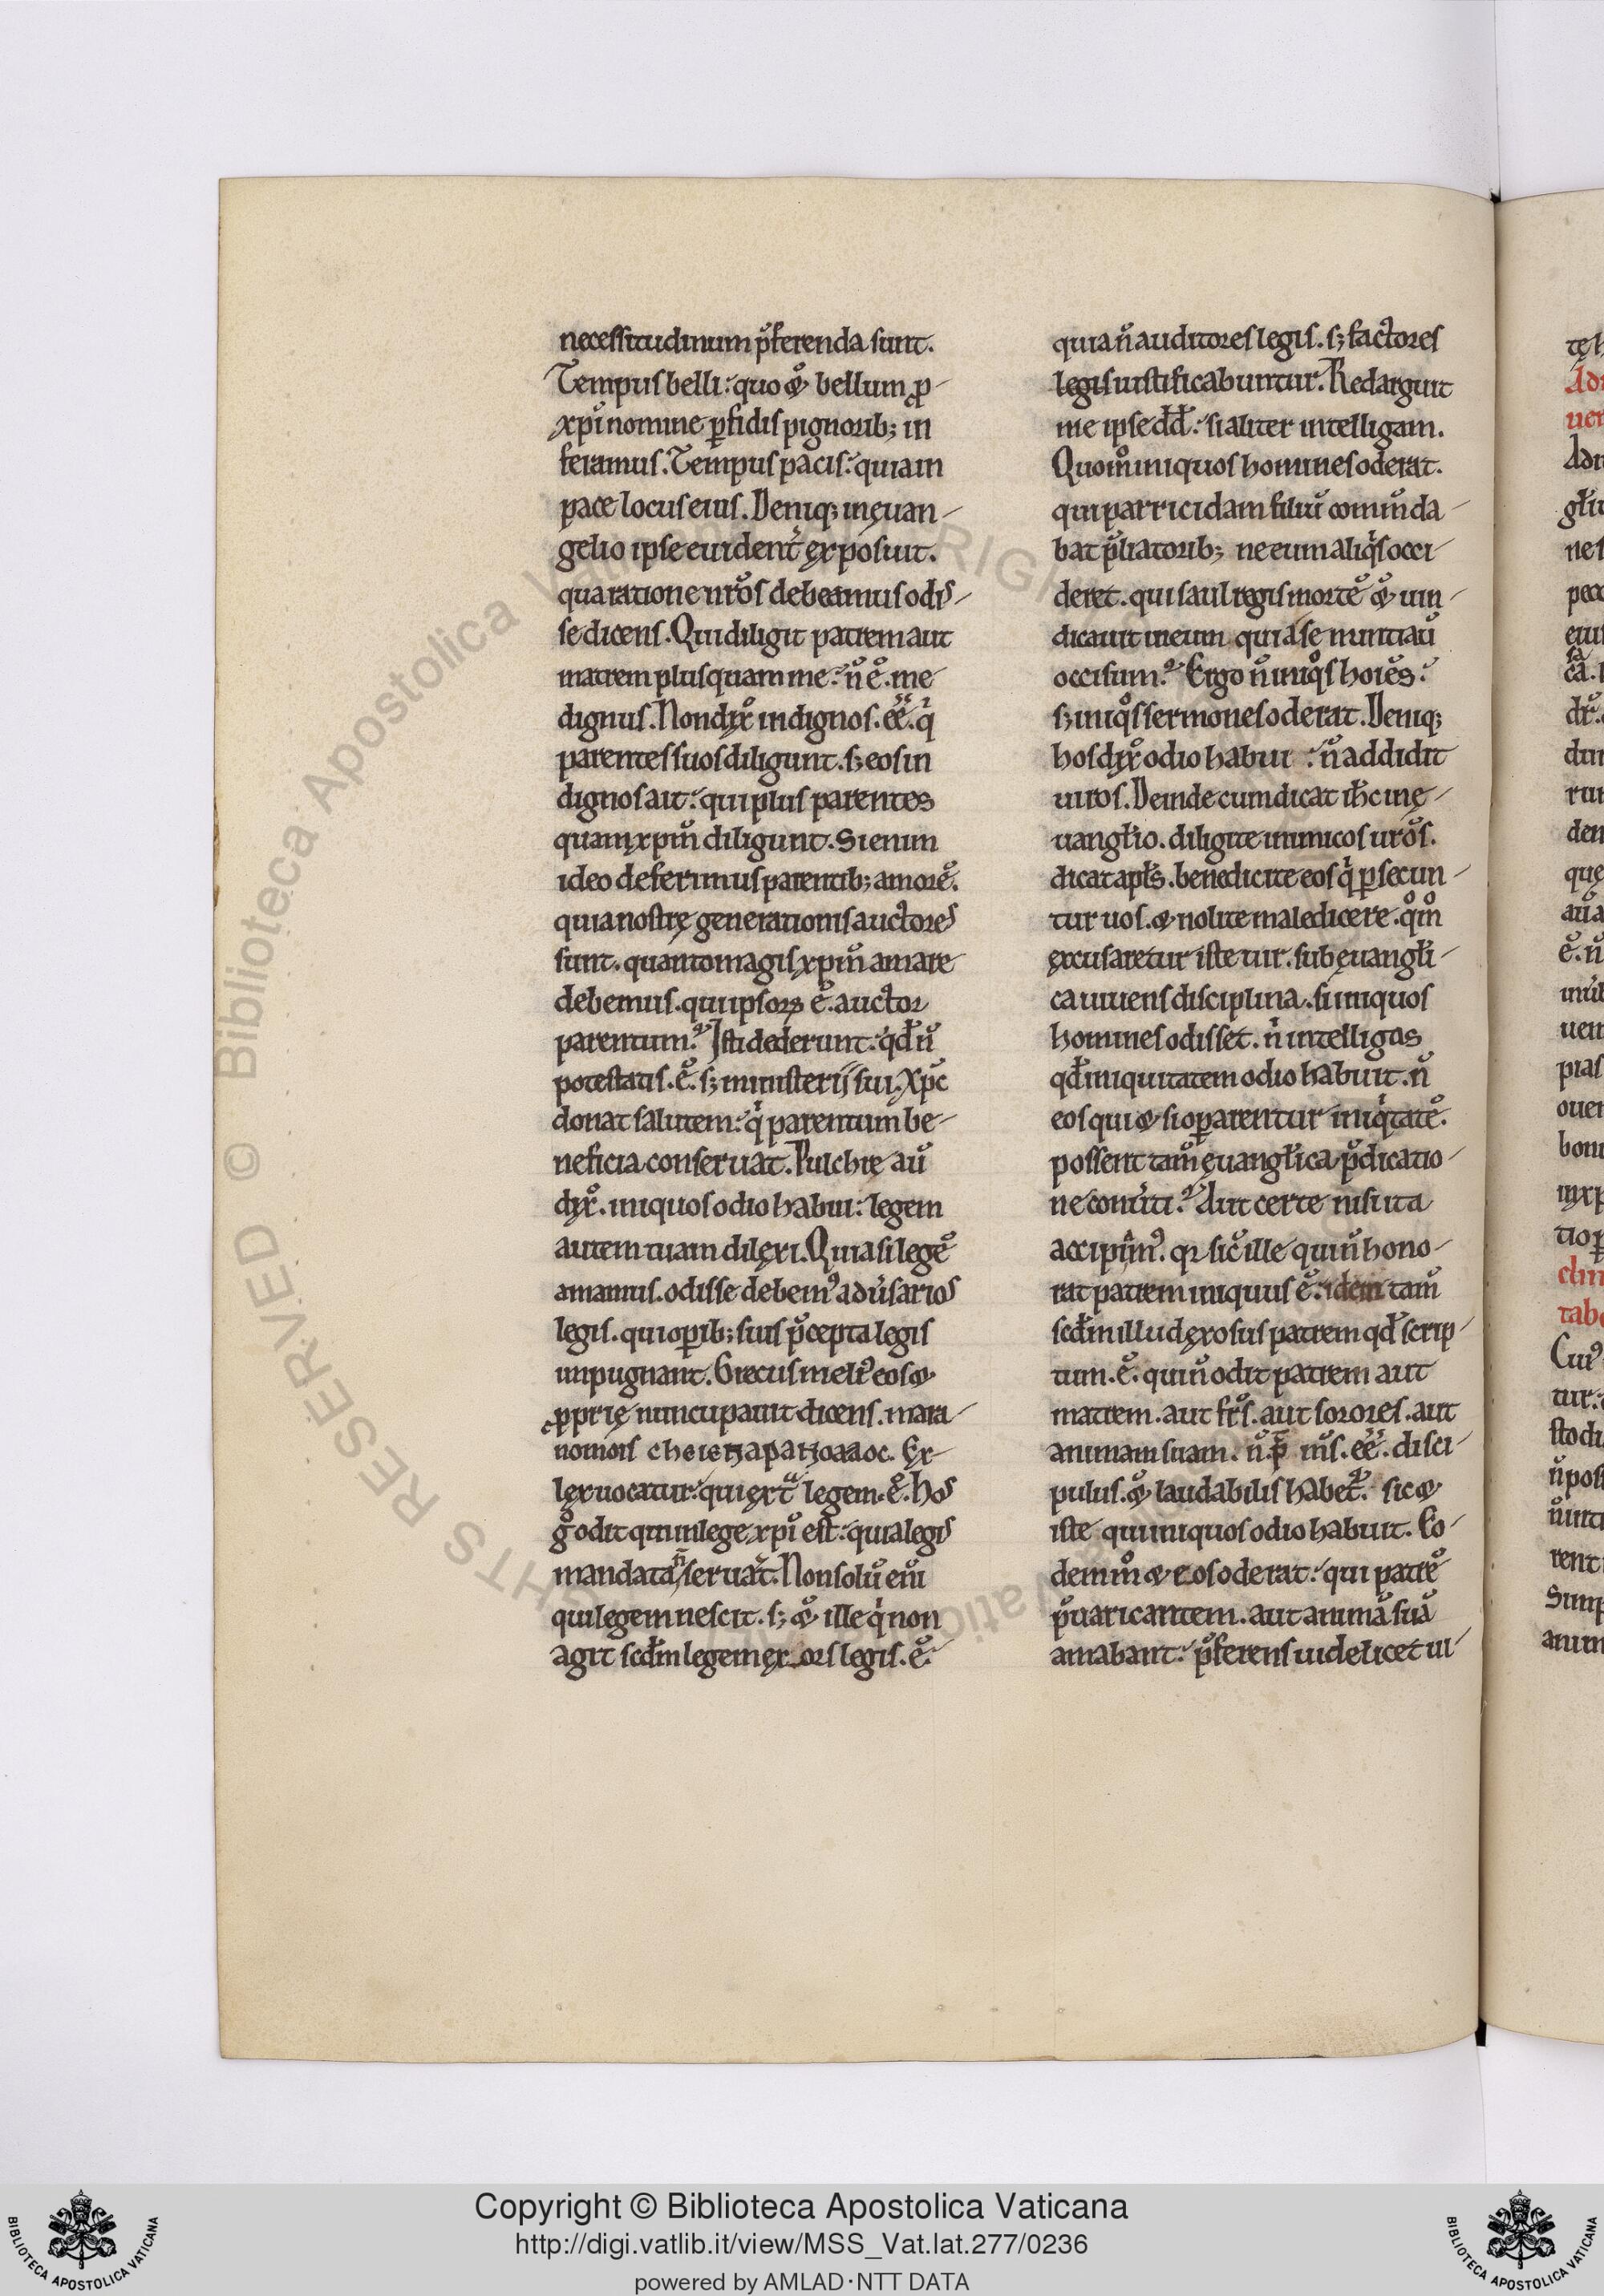 necessitudinum p̄ferenda sunt.
Tempus belli: quo & bellum ꝓ-
xpi nomine ꝑfidis pignorib; in
feramus. Tempus pacis: quia in
pace locus eius. Deniq; in ęuan-
gelio ipse euident̄ exposuit.
qua ratione nr̄os debeamus odis-
se dicens. Qui diligit patrem aut
matrem plus quam me: n̄ ē. me
dignus. Non dix̄ indignos. eē. q̄
parentes suos diligunt. s; eos in
dignos ait: qui plus parentes
quam xpm̄ diligunt. Si enim
ideo deferimus parentib; amorē.
quia nostrę generationis auctores
sunt. quanto magis xpm̄ amare
debemus. qui ipsoꝝ ē. auctor
parentum? Isti dederunt: qd̄ n̄
potestatis. ē. s; ministerij sui. Xpc̄
donat salutem: q̄ parentum be-
neficia conseruat. Pulchrę aū
dix̄. iniquos odio habui: legem
autem tuam dilexi. Quia si legē
amamus. odisse debem' aduersarios
legis. qui oꝑib; suis p̄cepta legis
impugnant. Grecus meli' eos &
ꝓprię nuncupauit dicens. mara-
nomois Ex-
lex uocatur: qui extͣ legem. ē. Hos
gͦ odit qui in lege xpi est: quia legis
mandata n̄ seruat. Non solū enī
qui legem nescit. s; & ille q̄ non
agit scd̄m legem exors legis. ē.
quia n̄ auditores legis. s; factores
legis iustificabuntur. Redarguit
me ipse dd̄: si aliter intelligam.
Quom̊ iniquos homines oderat.
qui parricidam filiū com̄nda-
bat p̄liatorib; ne eum aliq̄s occi-
deret. qui saul regis mortē & uin-
dicauit in eum quia se nuntiaū
occisum? Ergo n̄ iniq̊s hoīes:
s; iniq̊s sermones oderat. Deniq;
hos dix̄ odio habui: n̄ addidit
uiros. Deinde cum dicat ihc̄ in ę-
uangl̄io. diligite inimicos ur̄os.
dicat apl̄s. benedicite eos q̄ ꝑsecun-
tur uos. & nolite maledicere. qm̄
excusaretur iste uir. sub ęuangl̄i-
ca uiuens disciplina. si iniquos
homines odisset. n̄ intelligas
qd̄ iniquitatem odio habuit. n̄
eos qui & si oꝑarentur iniq̄tatē.
possent tam̄ ęuangl̄ica p̄dicatio-
ne conuerti? Aut certe nisi ita
accipim̄'. q sic ille qui n̄ hono-
rat patrem iniquus ē: idem tam̄
scd̄m illud exosus patrem qd̄ scrip-
tum. ē. qui n̄ odit patrem aut
matrem. aut fr̄s. aut sorores. aut
animam suam. n̄. p̄ m̄s. eē. disci-
pulus. & laudabilis habet: sic &
iste qui iniquos odio habuit. Eo-
dem m̊ & eos oderat: qui patrē
p̄uaricantem. aut animā suā
amabant: p̄ferens uidelicet ill-